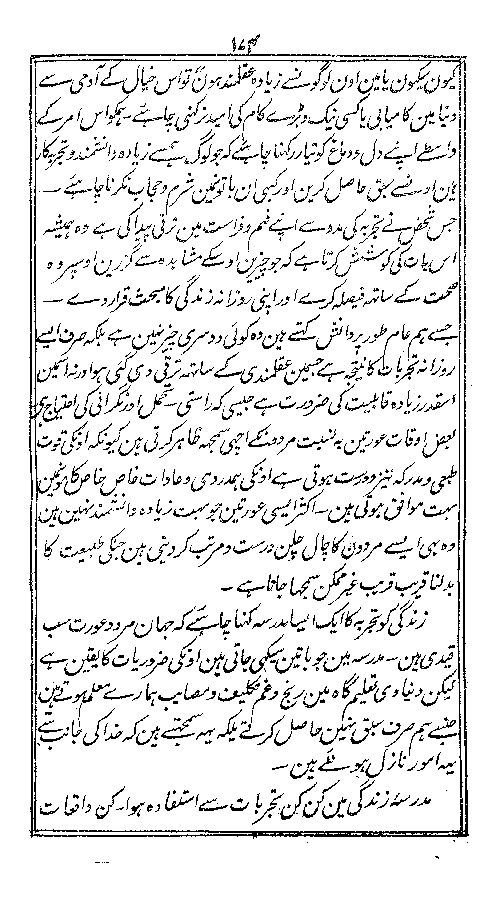 ۱۷۴
کیون سیکھون یا مین اون لوگونسے زیادہ عقلمند ہون گا تو اس خیال کے آدمی سے
دنیا مین کامیابی یا کسی نیک و بڑے کام کی امید نرکھنی چاہئے ہمکو اس امر کے
واسطے اپنے دل و دماغ کو تیار رکھنا چاہئے کہ جو لوگ ہمسے زیادہ دانشمند و تجربہ کار
ہین اونسے سبق حاصل کرین اور کبھی ان باتونمین شرم و حجاب نکرنا چاہئے ۔
جس شخص نے تجربہ کی مدد سے اپنے فہم و فراست مین ترقی پیدا کی ہے وہ ہمیشہ
اس بات کی کوشش کرتا ہے کہ جو چیزین اوسکے مشاہدہ سے گزرین اوسپر وہ
صحت کے ساتھ فیصلہ کرے اور اپنی روزانہ زندگی کا مبحث قرار دے ۔
جسے ہم عام طور پر دانش کہتے ہین وہ کوئی دوسری چیز نہین ہے بلکہ صرف ایسے
روزانہ تجربات کا نتیجہ ہے جسمین عقلمندی کے ساتھ ترقی دی گئی ہو ورنہ اسکین
اسقدر زیادہ قابلیت کی ضرورت ہے جیسی کہ راستی ۔ تحمل اور نگرانی کی احتیاج ہی
بعض اوقات عورتین بہ نسبت مردونکے اچھی سمجھ ظاہر کرتی ہین کیونکہ اونکی قوت
طبعی و مدرکہ تیز و درست ہوتی ہے اونکی ہمدردی و عادات خاص خاص کامونمین
بہت موافق ہوتی ہین ۔ اکثر ایسی عورتین جو بہت زیادہ دانشمند نہین ہین
وہ بھی ایسے مردون کا چال چلن درست و مرتب کر دیتی ہین جنکی طبیعت کا
بدلنا قریب قریب غیر ممکن سمجھا جاتا ہے ۔
زندگی کو تجربہ کا ایک ایسا مدرسہ کہنا چاہئے کہ جہان مرد و عورت سب
قیدی ہین ۔ مدرسہ مین جو باتین سیکھی جاتی ہین اونکی ضروریات کا یقین ہے
لیکن دنیاوی تعلیم گاہ مین رنج و غم تکلیف و مصایب ہمارے معلم ہوتے ہین
جنسے ہم صرف سبق نہین حاصل کرتے بلکہ یہہ سمجھتے ہین کہ خدا کی جانب سے
یہہ امور نازل ہوئے ہین ۔
مدرسۂ زندگی مین کن کن تجربات سے استفادہ ہوا ۔ کن واقعات